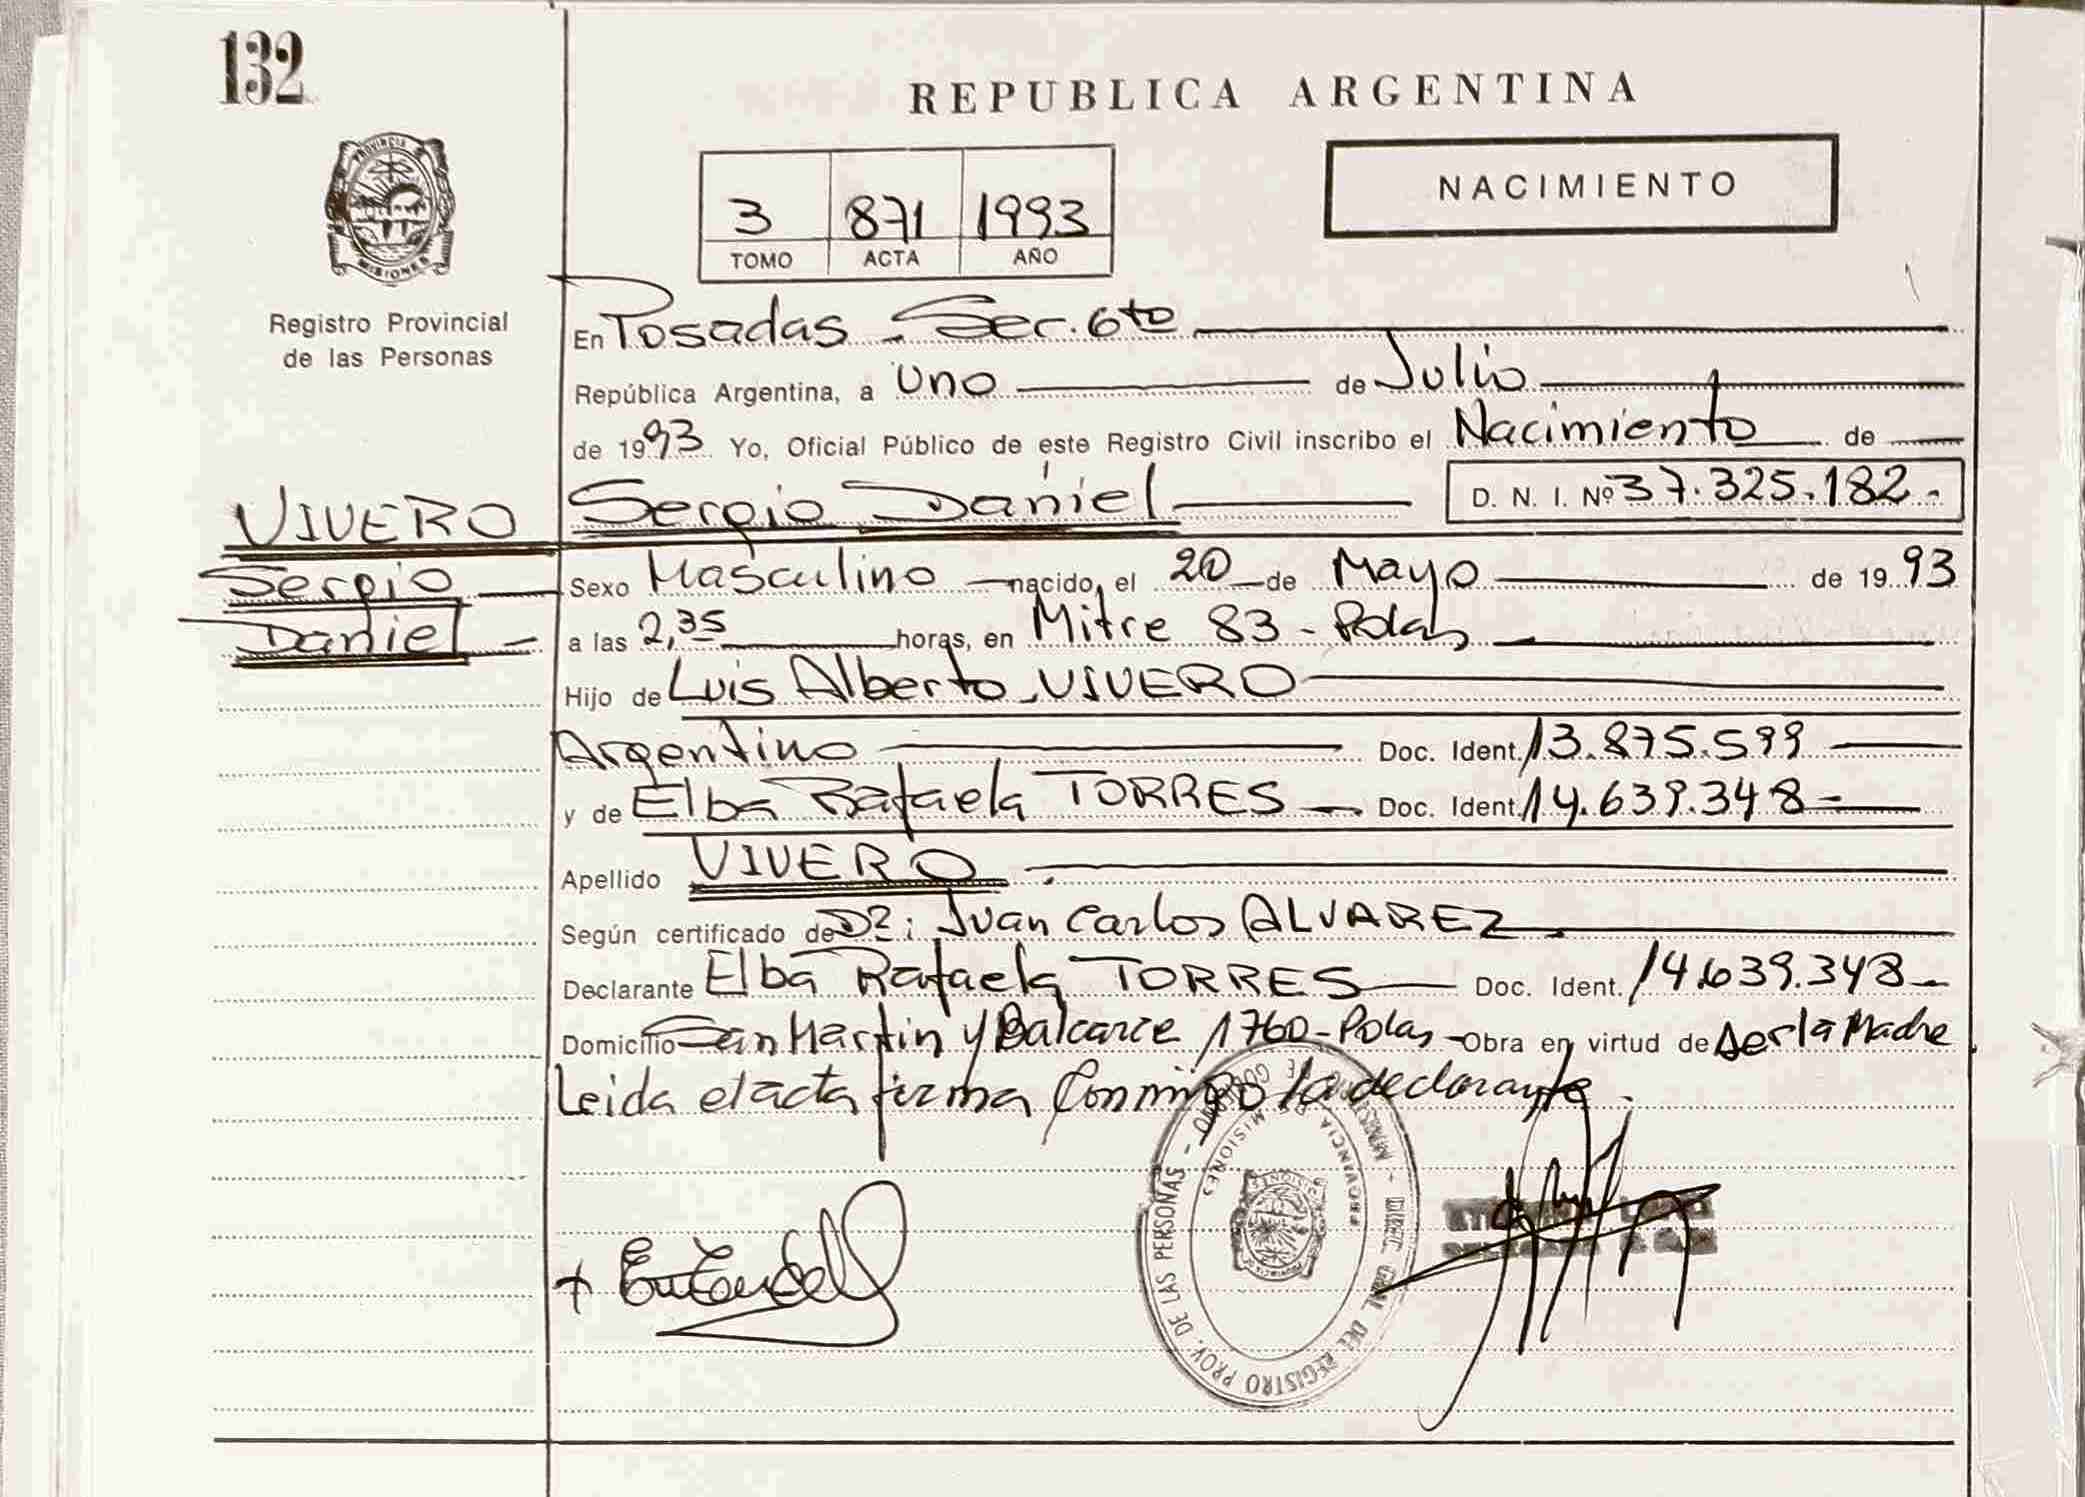 132
REPUBLICA ARGENTINA
NACIMIENTO
3 871 1993
TOMO ACTA AÑO
PROVINCIA DE
MISIONES
Registro Provincial
de las Personas
En Posadas - Sec. 6to
República Argentina, a Uno de Julio
de 1993 Yo, Oficial Público de este Registro Civil inscribo el Nacimiento de
VIVERO Sergio Daniel D. N. I. Nº 37.325.182.-
Sergio
Daniel -
Sexo Masculino nacido, el 20 de Mayo de 1993
a las 2,35 horas, en Mitre 83 - Pdas
Hijo de Luis Alberto VIVERO
Argentino Doc. Ident. 13.875.599
y de Elba Rafaela TORRES - Doc. Ident. 14.639.348 -
Apellido VIVERO
Según certificado de Dr: Juan Carlos ALVAREZ
Declarante Elba Rafaela TORRES Doc. Ident. 14.639.348 -
Domicilio San Martin y Balcarce 1760 - Pdas - Obra en virtud de ser la Madre
Leida el acta firma Conmigo la declarante.
MINISTERIO DE GOBIERNO - DIREC. GRAL. DEL REGISTRO PROV. DE LAS PERSONAS -
PROVINCIA DE MISIONES